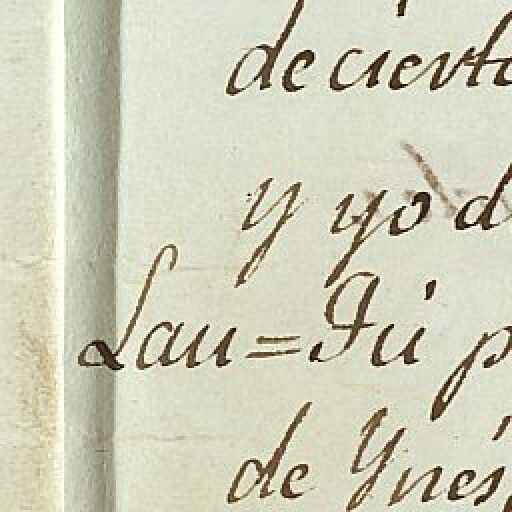 de cierto
y yo d
Lau=Tú p
de Ynés